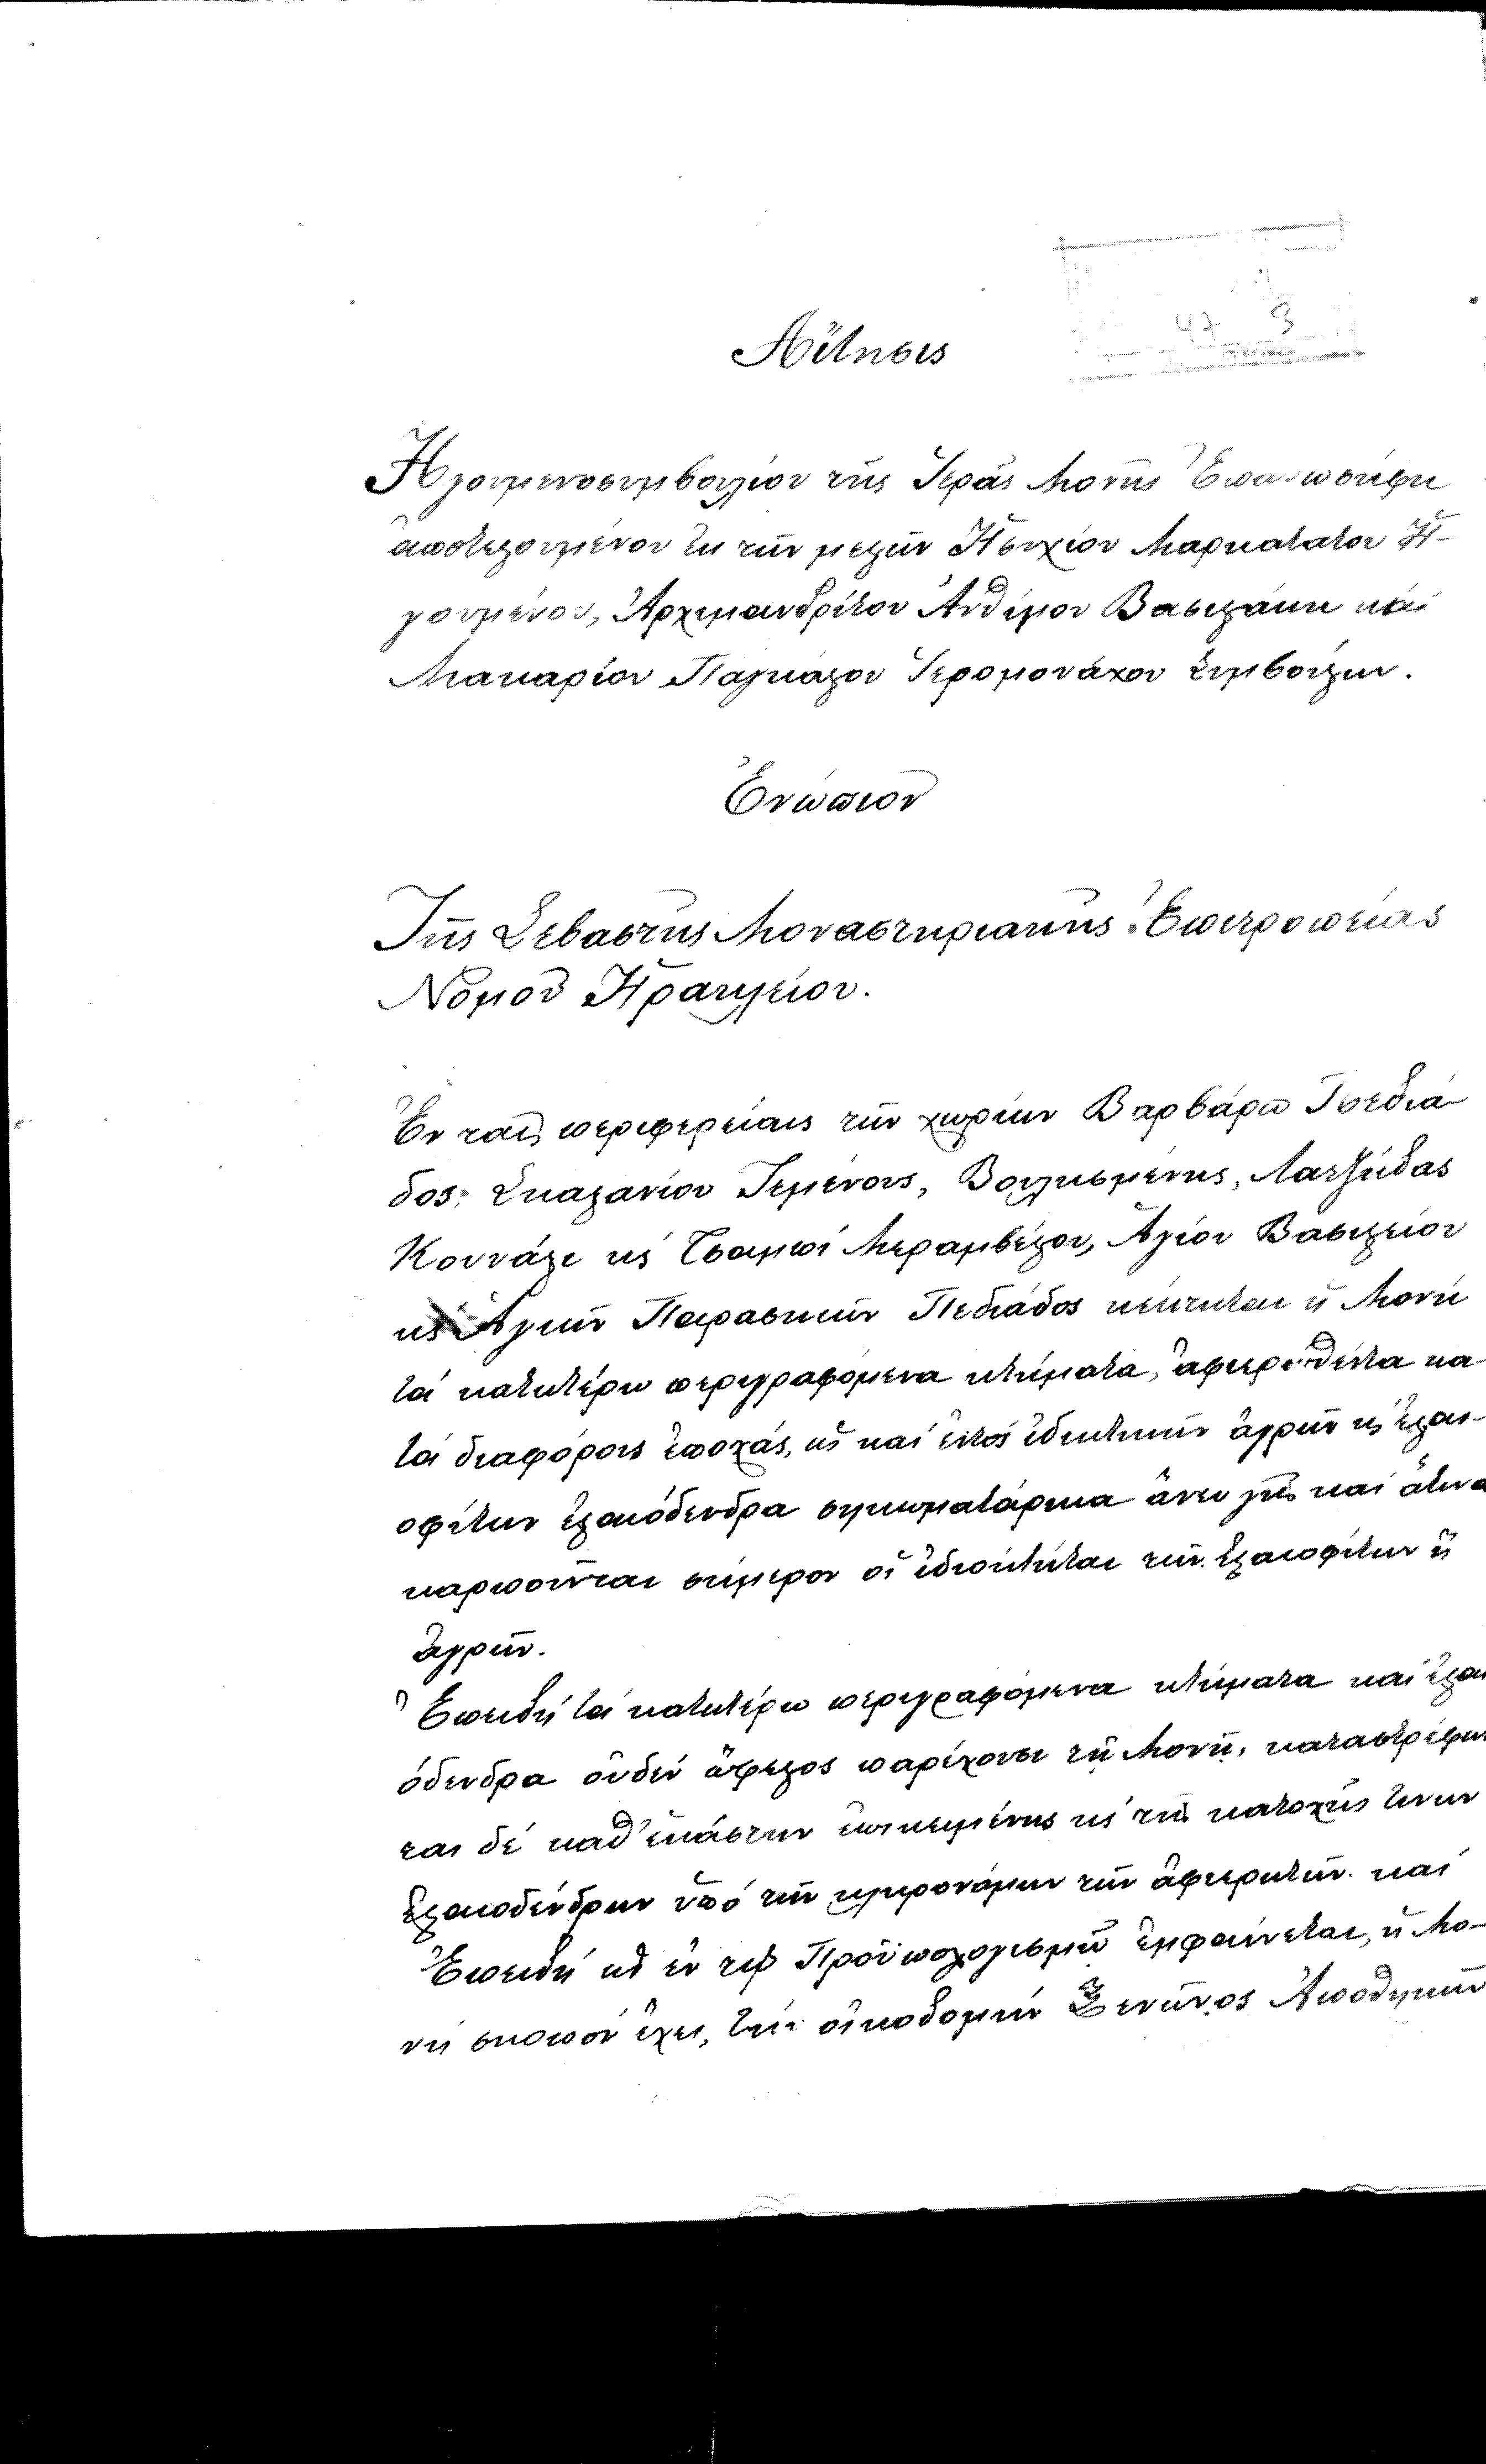 Αἴτησις
47 3
Ἡγουμενοσυμβουλίου τῆς Ἱερᾶς Μονῆς Ἐπανωσήφη
ἀποτελουμένου ἐκ τῶν μελῶν Ἡσυχίου Μαρκατάτου Ἡ-
γουμένου, Ἀρχιμανδρίτου Ἀνθίμου Βασιλάκη καὶ
Μακαρίου Παγκάλου Ἱερομονάχου Συμβούλων.
Ἐνώπιον
Τῆς Σεβαστῆς Μοναστηριακῆς Ἐπιτροπείας
Νομοῦ Ἡρακλείου.
Ἐν ταῖς περιφερείαις τῶν χωρίων Βαρβάρω Πεδιά
δος, Σκαλανίου Τεμένους, Βουλισμένης, Λατζίδας
Κουνάλι κ Τσαμπὶ Μεραμβέλου, Ἁγίου Βασιλείου
κ Ἁγιῶν Παρασκιῶν Πεδιάδος κέκτηται ἡ Μονή
τὰ κατωτέρω περιγραφόμενα κτήματα, ἀφιερωθέντα κα
τὰ διαφόρους ἐποχάς, ὡς καὶ ἐντὸς ἰδιωτικῶν ἀγρῶν κ ἐλαι-
οφύτων ἐλαιόδενδρα σηκωματάρικα ἄνευ γῆς καὶ ἅτινα
καρποῦνται σήμερον οἱ ἰδιοκτῆται τῶν ἐλαιοφύτων ἢ
ἀγρῶν.
Ἐπειδὴ τὰ κατωτέρω περιγραφόμενα κτήματα καὶ ἐλαι
όδενδρα οὐδὲν ὄφελος παρέχουσι τῇ Μονῇ, καταστρέφον
ται δὲ καθ' ἑκάστην ἐπικειμένης κ τῆς κατοχῆς τινων
ἐλαιοδένδρων ὑπὸ τῶν κληρονόμων τῶν ἀφιερωτῶν. καὶ
Ἐπειδὴ ὡς ἐν τῷ Προϋπολογισμῷ ἐμφαίνεται, ἡ Μο-
νὴ σκοπὸν ἔχει, τὴν οἰκοδομὴν Ξενῶνος Ἀποθηκῶν